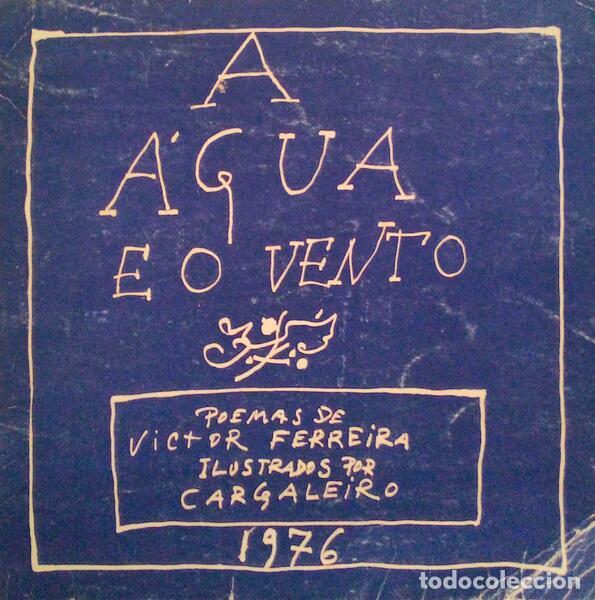 A
ÁGUA
E O VENTO
POEMAS DE
VICTOR FERREIRA
ILUSTRADOS POR
CARGALEIRO
1976
todocoleccion